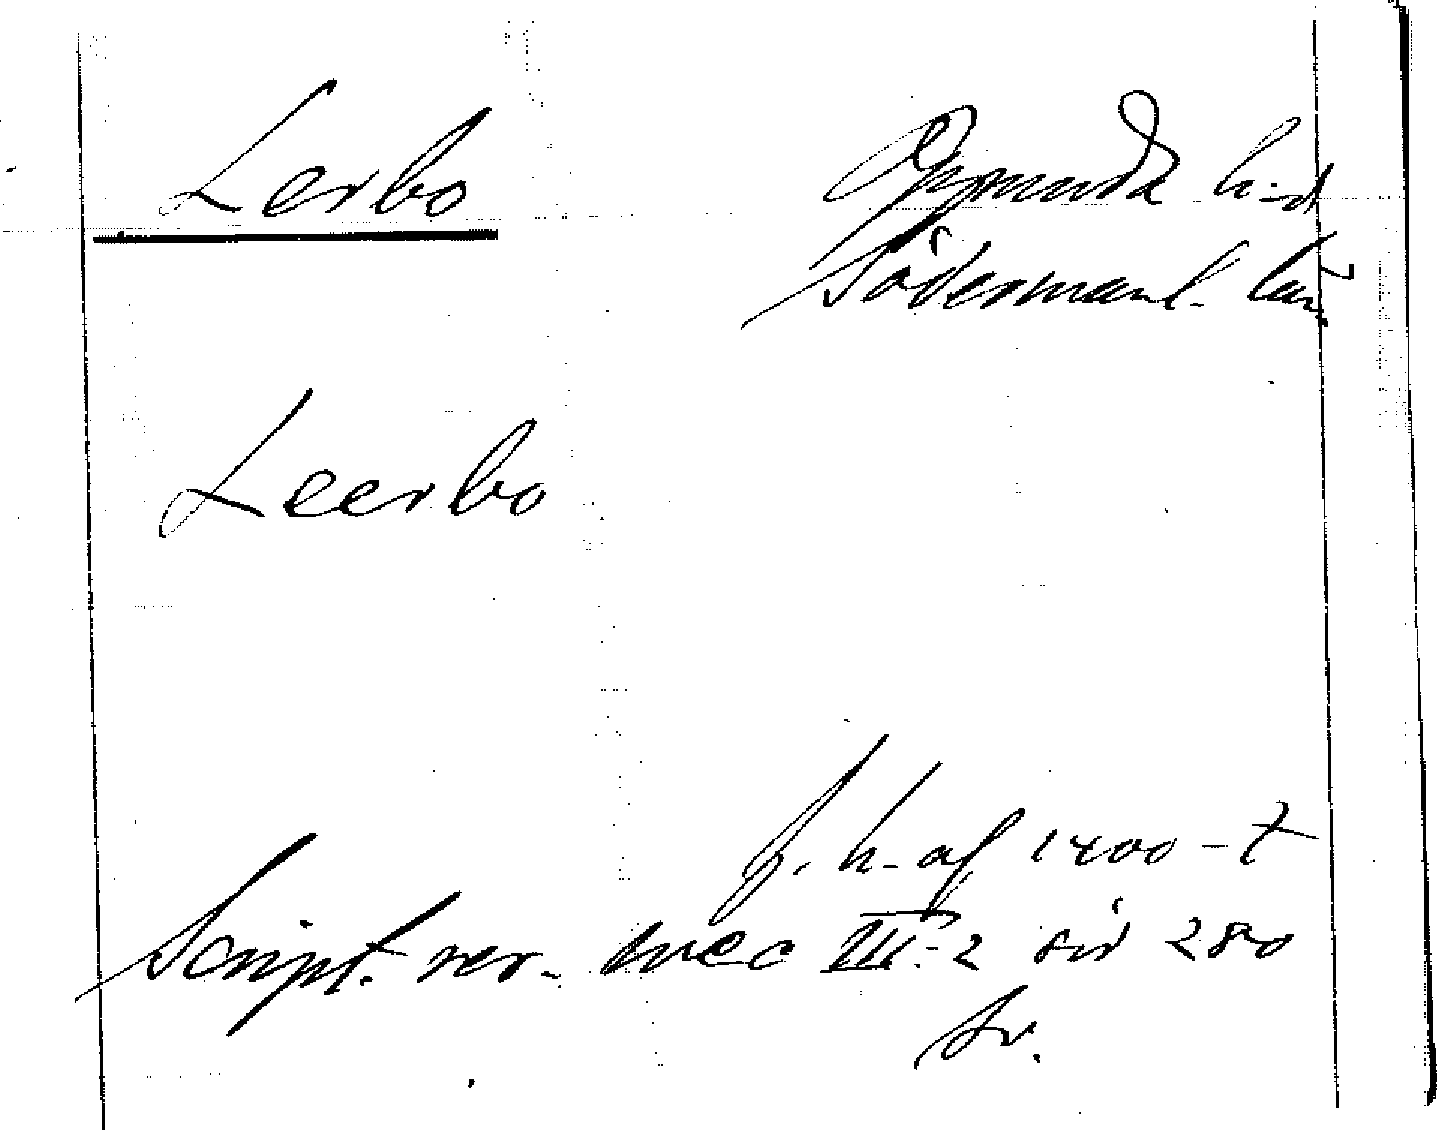 Lerbo
Oppunda h-d
Södermanl. län
Leerbo
f. h. af 1400-t
Script. rer. svec III:2 sid 280
Sv.